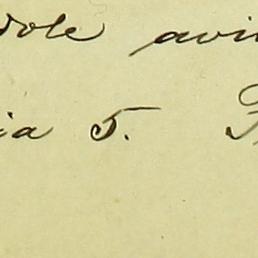 dole avi
ia 5.